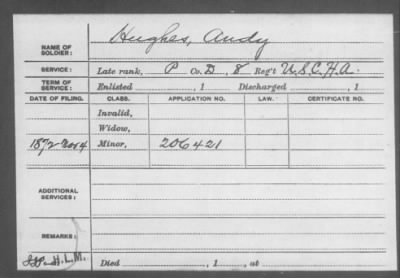 NAME OF SOLDIER: Hughes, Andy
SERVICE: Late rank, P Co. D, 8 Reg't U.S.C.H.A.
TERM OF SERVICE: Enlisted , 1 Discharged , 1
DATE OF FILING. CLASS. APPLICATION NO. LAW. CERTIFICATE NO.
Invalid,
Widow,
1872 Minor, 206421
ADDITIONAL SERVICES:
REMARKS:
H.L.M. Died , 1 , at